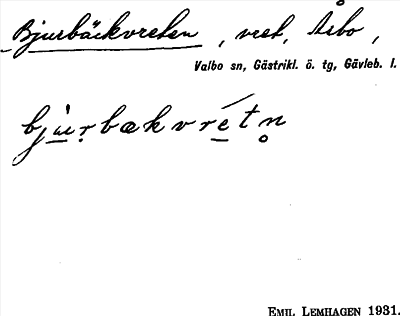 Bjurbäckvreten, vret, Åsbo,
Valbo sn, Gästrikl. ö. tg, Gävleb. l.
bju̇rbækvrétn̥
EMIL LEMHAGEN 1931.